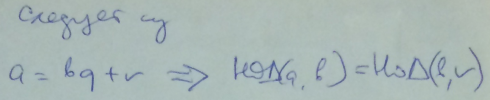 следует из
a = bq + r ⇒ НОД(a, b) = НОД(b, r)